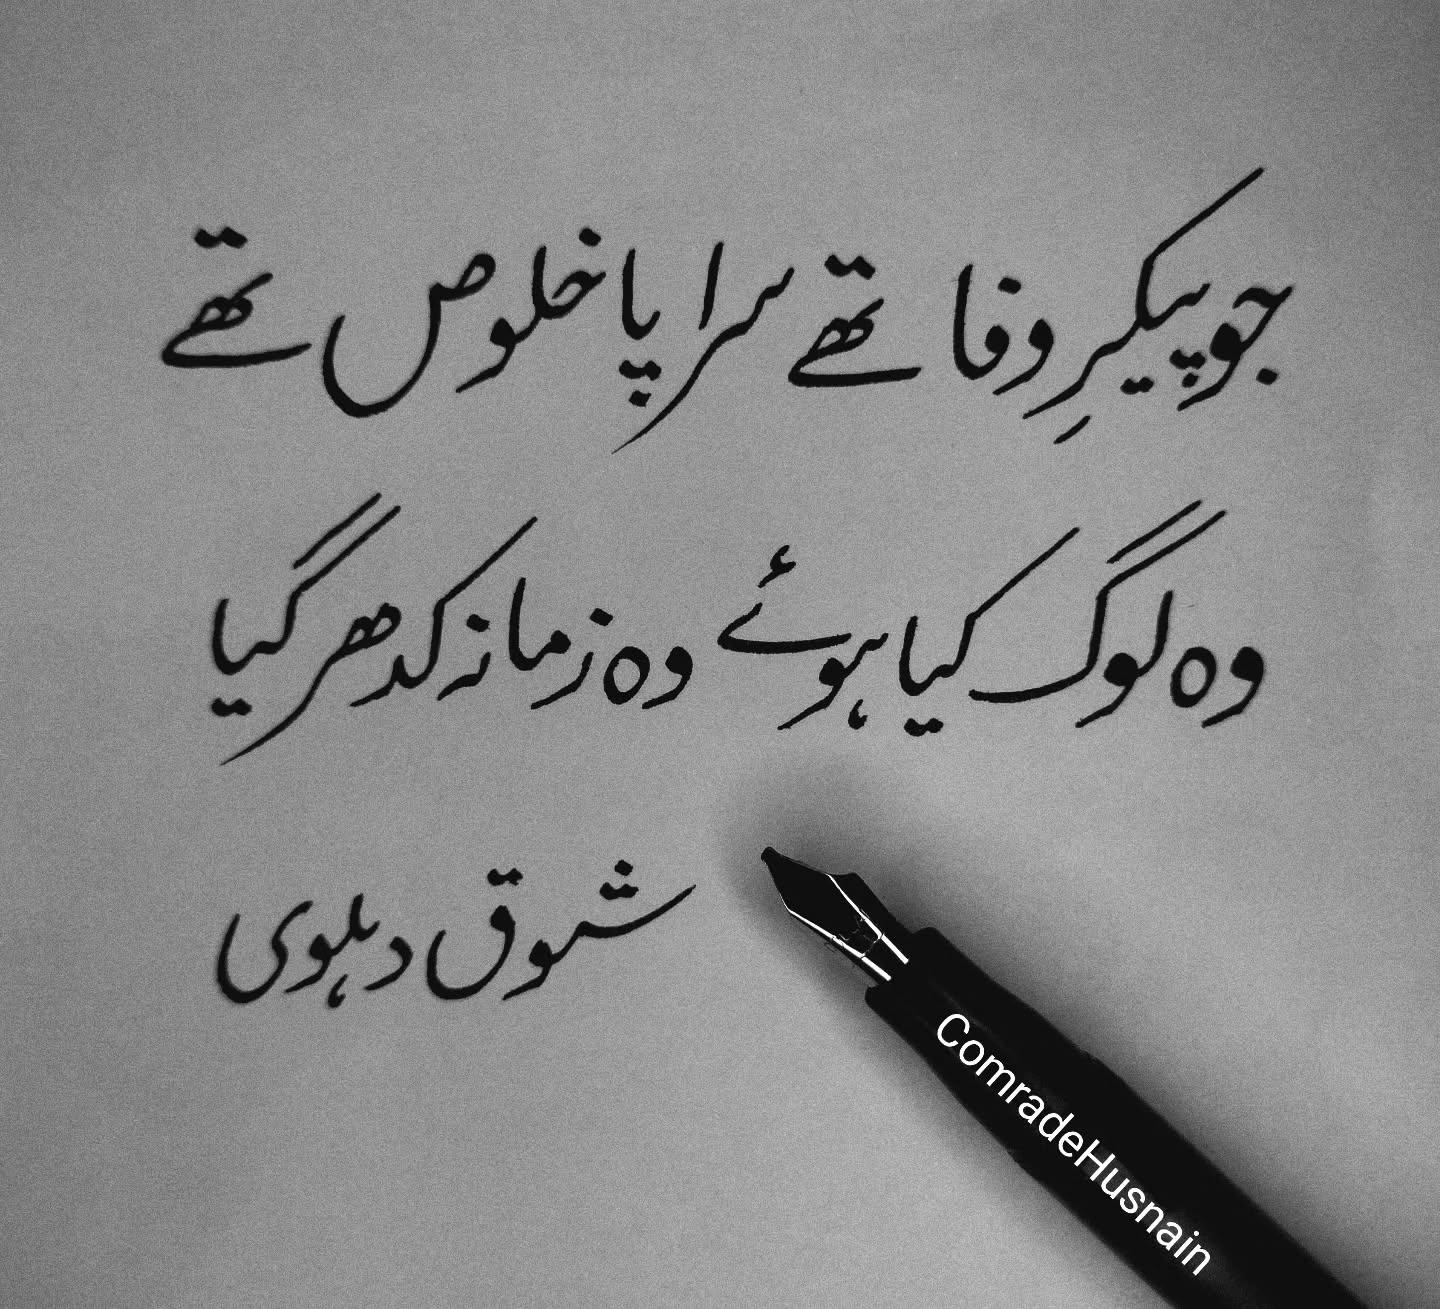 جو پیکرِ وفا تھے سراپا خلوص تھے
وہ لوگ کیا ہوئے وہ زمانہ کدھر گیا
شوق دہلوی
ComradeHusnain